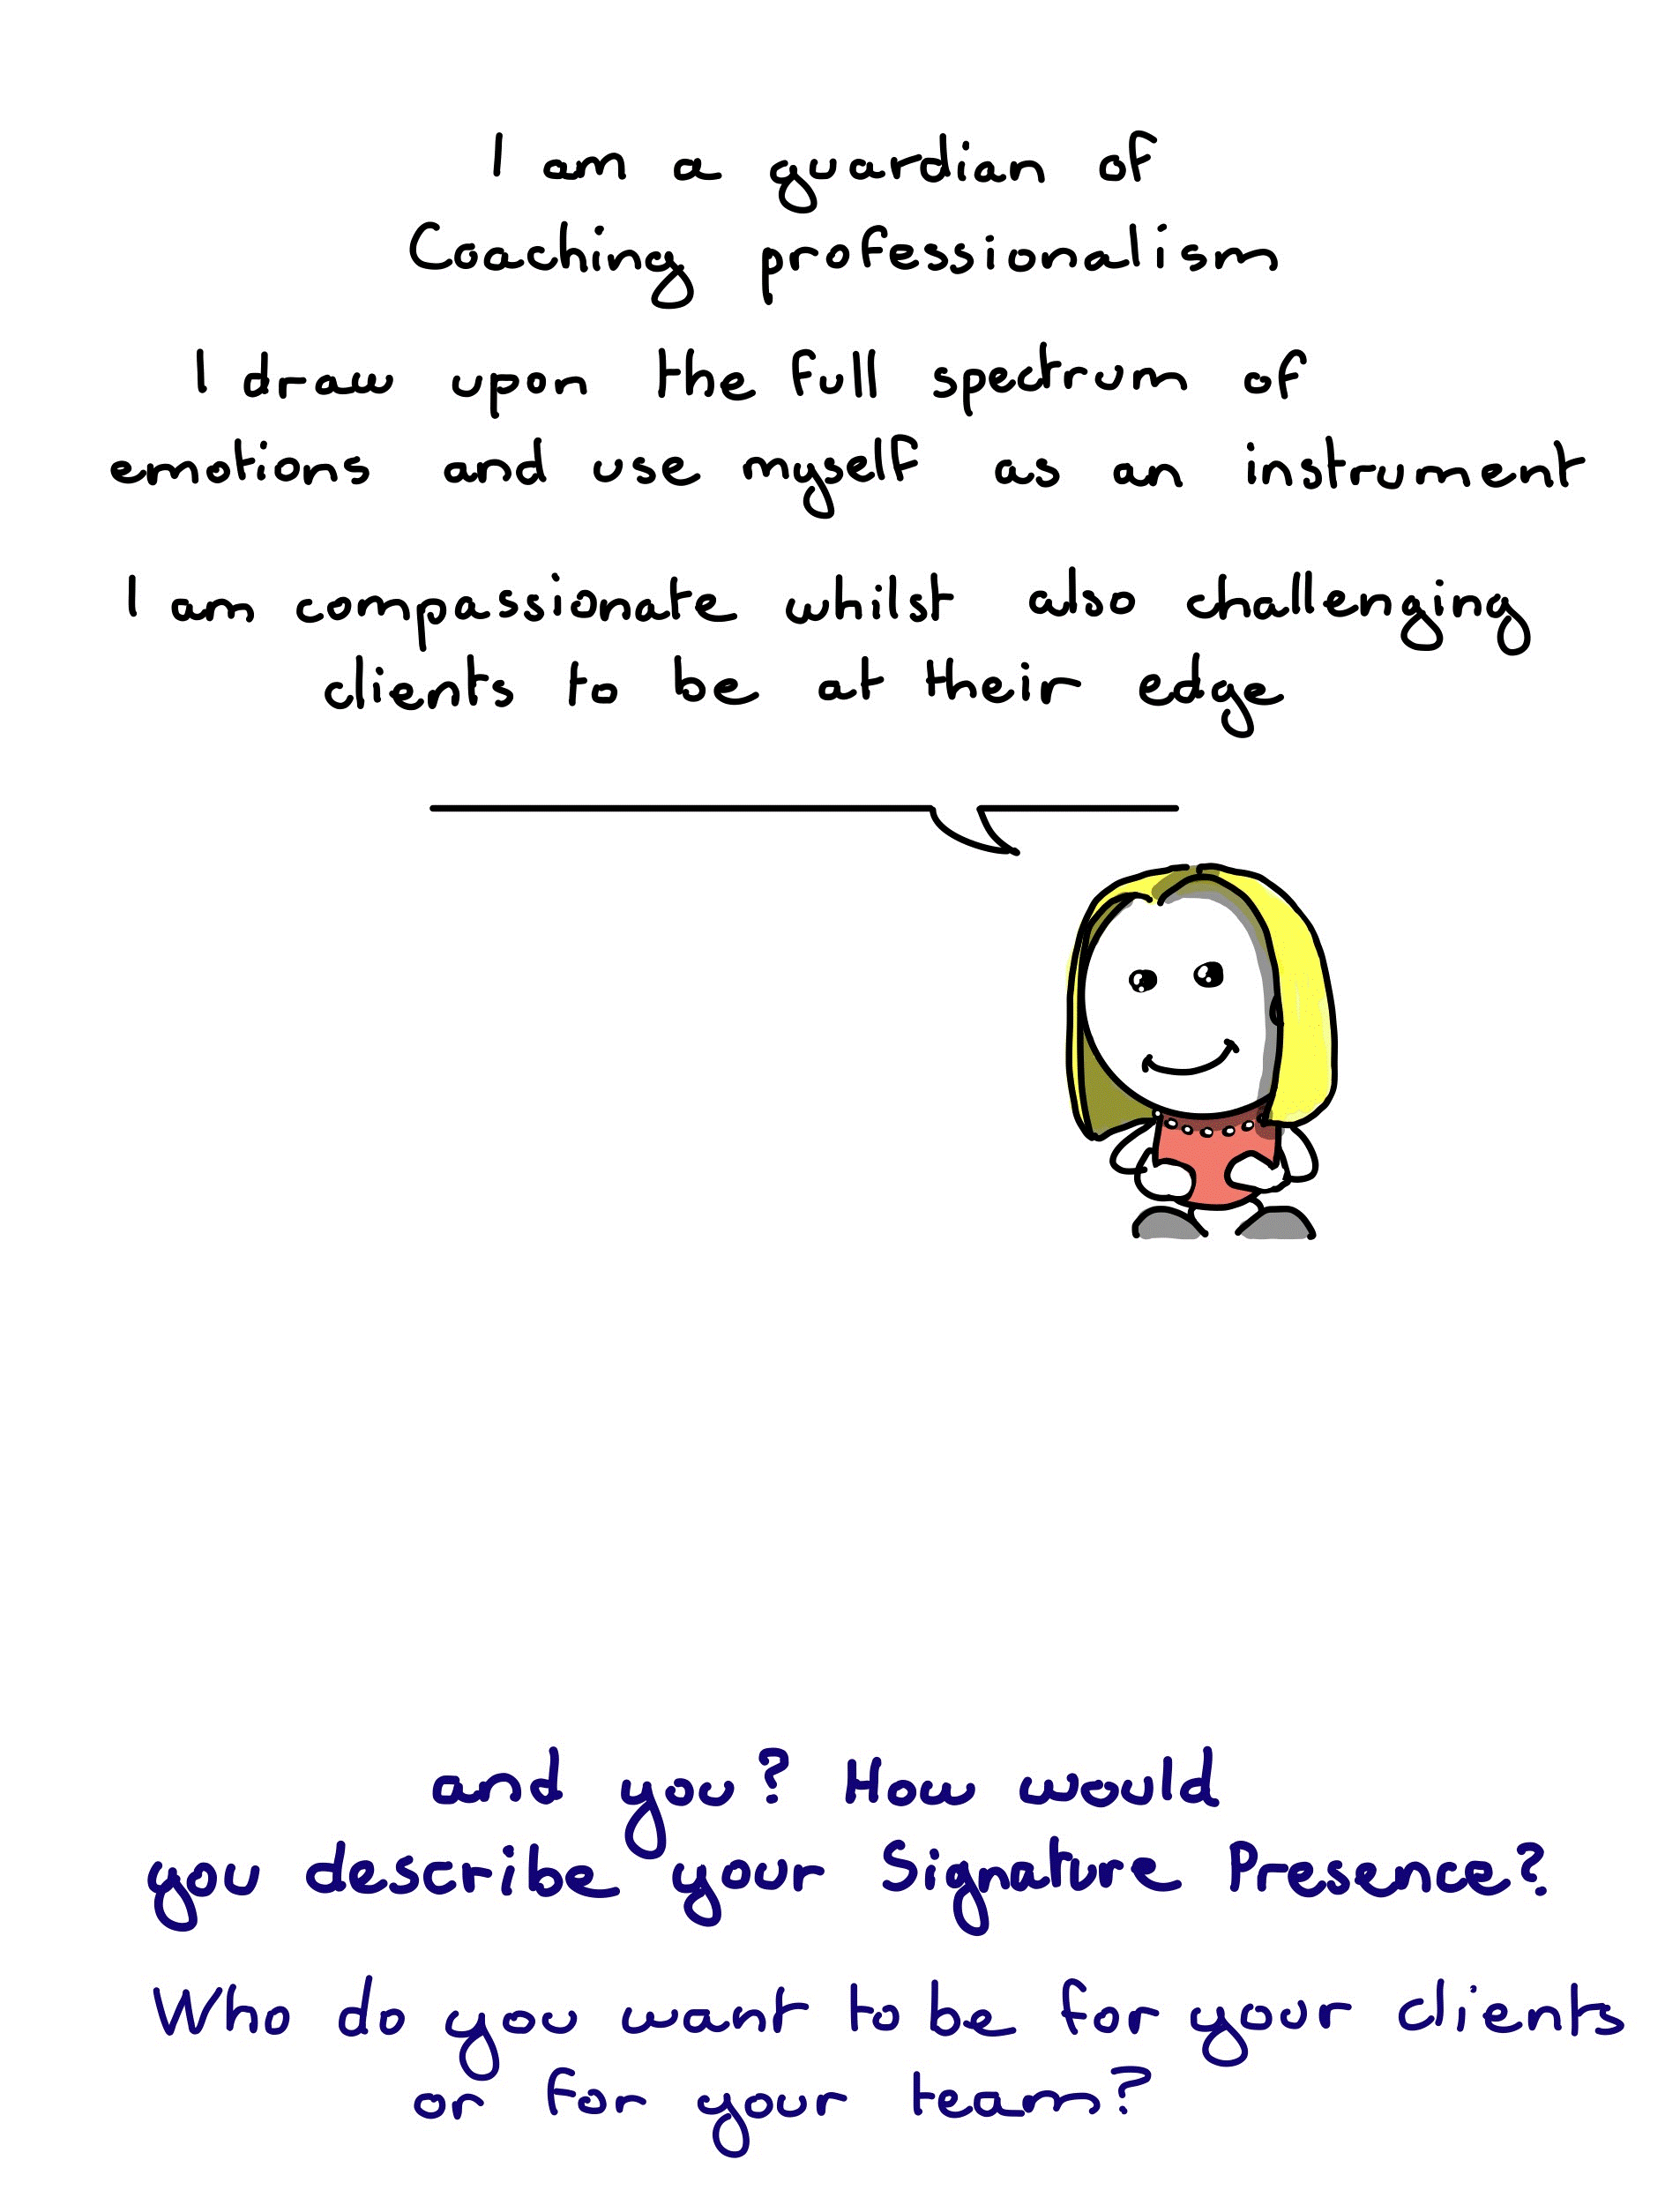 I am a guardian of
Coaching professionalism
I draw upon the full spectrum of
emotions and use myself as an instrument
I am compassionate whilst also challenging
clients to be at their edge
and you? How would
you describe your Signature Presence?
Who do you want to be for your clients
or for your team?